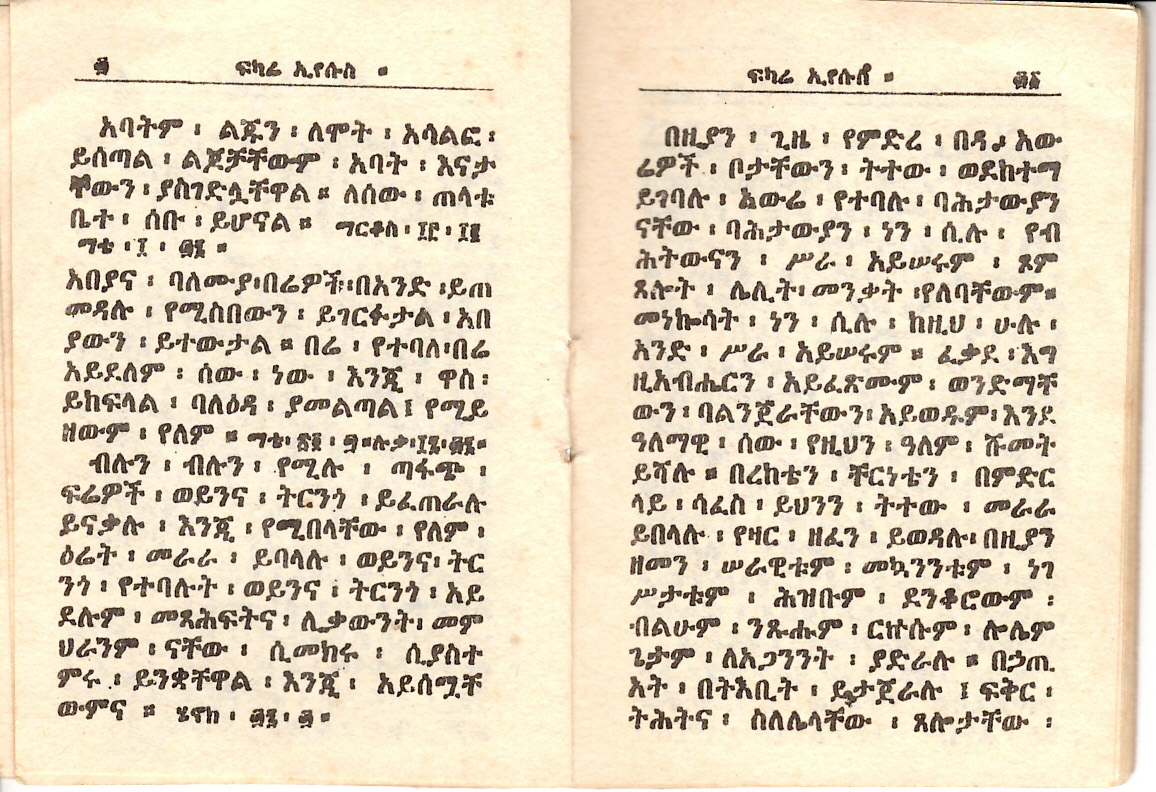 ፴ ፍካሬ ኢየሱስ ።
አባትም ፡ ልጁን ፡ ለሞት ፡ አሳልፎ ፡
ይሰጣል ፡ ልጆቻቸውም ፡ አባት ፡ እናታ
ቸውን ፡ ያስገድሏቸዋል ። ለሰው ፡ ጠላቱ
ቤተ ፡ ሰቡ ፡ ይሆናል ። ማርቆስ ፡ ፲፫ ፡ ፲፪
ማቴ ፡ ፲ ፡ ፴፮ ።
አበያና ፡ ባለሙያ፡በሬዎች፡በአንድ ፡ይጠ
መዳሉ ፡ የሚስበውን ፡ ይገርፉታል ፡ አበ
ያውን ፡ ይተውታል ። በሬ ፡ የተባለ፡በሬ
አይደለም ፡ ሰው ፡ ነው ፡ እንጂ ፡ ዋስ ፡
ይከፍላል ፡ ባለዕዳ ፡ ያመልጣል፤ የሚይ
ዘውም ፡ የለም ። ማቴ፡
ብሉን ፡ ብሉን ፡ የሚሉ ፡ ጣፋጭ ፡
ፍሬዎች ፡ ወይንና ፡ ትርንጎ ፡ ይፈጠራሉ
ይናቃሉ ፡ እንጂ ፡ የሚበላቸው ፡ የለም ፡
ዕሬት ፡ መራራ ፡ ይባላሉ ፡ ወይንና፡ ትር
ንጎ ፡ የተባሉት ፡ ወይንና ፡ ትርንጎ ፡ አይ
ደሉም ፡ መጻሕፍትና ፡ ሊቃውንት፡ መም
ህራንም ፡ ናቸው ፡ ሲመክሩ ፡ ሲያስተ
ምሩ ፡ ይንቋቸዋል ፡ እንጂ ፡ አይሰሟቸ
ውምና ። ሄኖክ ፡
ፍካሬ ኢየሱስ ። ፴፩
በዚያን ፡ ጊዜ ፡ የምድረ ፡ በዳ ፡ አው
ሬዎች ፡ ቦታቸውን ፡ ትተው ፡ ወደከተማ
ይገባሉ ፡ አውሬ ፡ የተባሉ ፡ ባሕታውያን
ናቸው ፡ ባሕታውያን ፡ ነን ፡ ሲሉ ፡ የብ
ሕትውናን ፡ ሥራ ፡ አይሠሩም ፡ ጾም
ጸሎት ፡ ሌሊት፡ መንቃት ፡የለባቸውም።
መነኰሳት ፡ ነን ፡ ሲሉ ፡ ከዚህ ፡ ሁሉ ፡
አንድ ፡ ሥራ ፡ አይሠሩም ። ፈቃደ ፡ እግ
ዚአብሔርን ፡ አይፈጽሙም ፡ ወንድማቸ
ውን ፡ ባልንጀራቸውን፡ አይወዱም፡ እንደ
ዓለማዊ ፡ ሰው ፡ የዚህን ፡ ዓለም ፡ ሹመት
ይሻሉ ። በረከቴን ፡ ቸርነቴን ፡ በምድር
ላይ ፡ ሳፈስ ፡ ይህንን ፡ ትተው ፡ መራራ
ይበላሉ ፡ የዛር ፡ ዘፈን ፡ ይወዳሉ፡ በዚያን
ዘመን ፡ ሠራዊቱም ፡ መኳንንቱም ፡ ነገ
ሥታቱም ፡ ሕዝቡም ፡ ደንቆሮውም ፡
ብልሁም ፡ ንጹሑም ፡ ርኩሱም ፡ ሎሌም
ጌታም ፡ ለአጋንንት ፡ ያድራሉ ። በኃጢ
አት ፡ በትእቢት ፡ ይታጀራሉ ፤ ፍቅር ፡
ትሕትና ፡ ስለሌላቸው ፡ ጸሎታቸው ፡